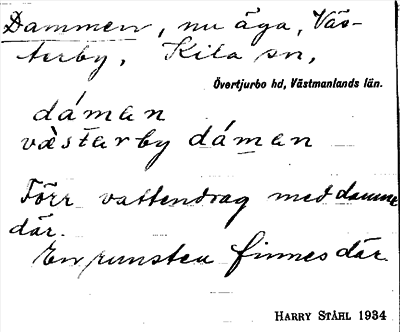 Dammen, nu äga, Väs-
terby, Kila sn,
Övertjurbo hd, Västmanlands län.
dáman
væ̀starby dáman
Förr vattendrag med damme
där.
En runsten finnes där.
HARRY STÅHL 1934